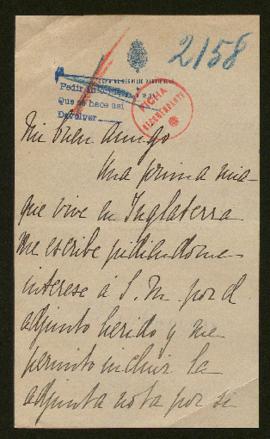 2158
Pedir
Que se hace así
Devolver
FICHA
Mi buen amigo
Una prima mia
que vive en Inglaterra
me escribe pidiendome
interese á S. M. por el
adjunto herido y me
permito incluir la
adjunta nota por si